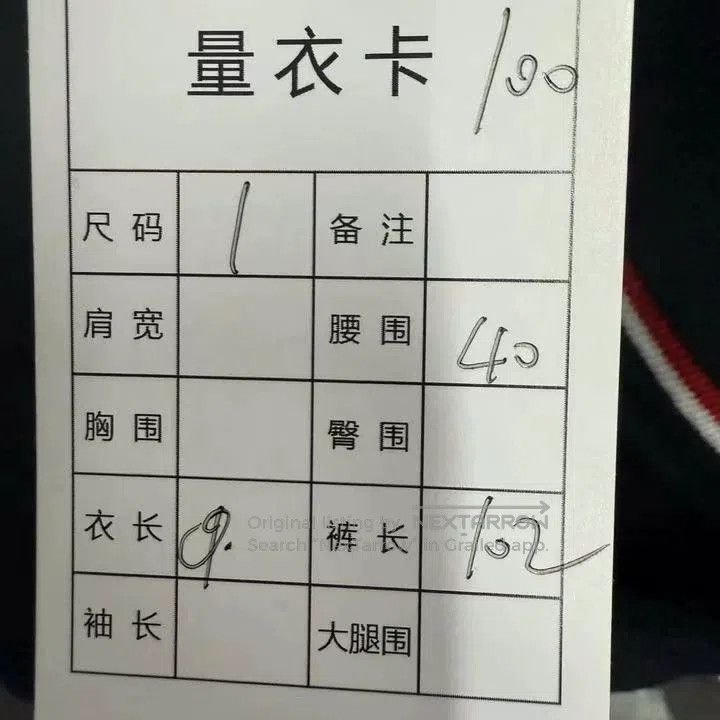 量衣卡 100
尺码 1 备注
肩宽 腰围 40
胸围 臀围
衣长 9. 裤长 102
袖长 大腿围
Original listing by NEXTARRON
Search "Nextarron" in Grailed app.